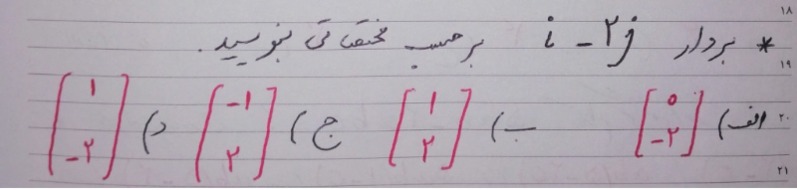 ۱۸
* بردار i - ۲j برحسب مختصاتی بنویسید.
۱۹
الف) [۰ -۲] ب) [۱ ۲] ج) [-۱ ۲] د) [۱ -۲]
۲۰
۲۱